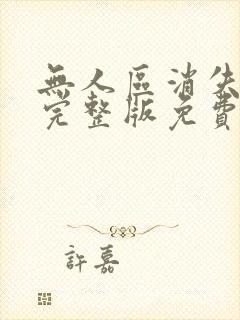 無人區消失
完整版免費
許嘉